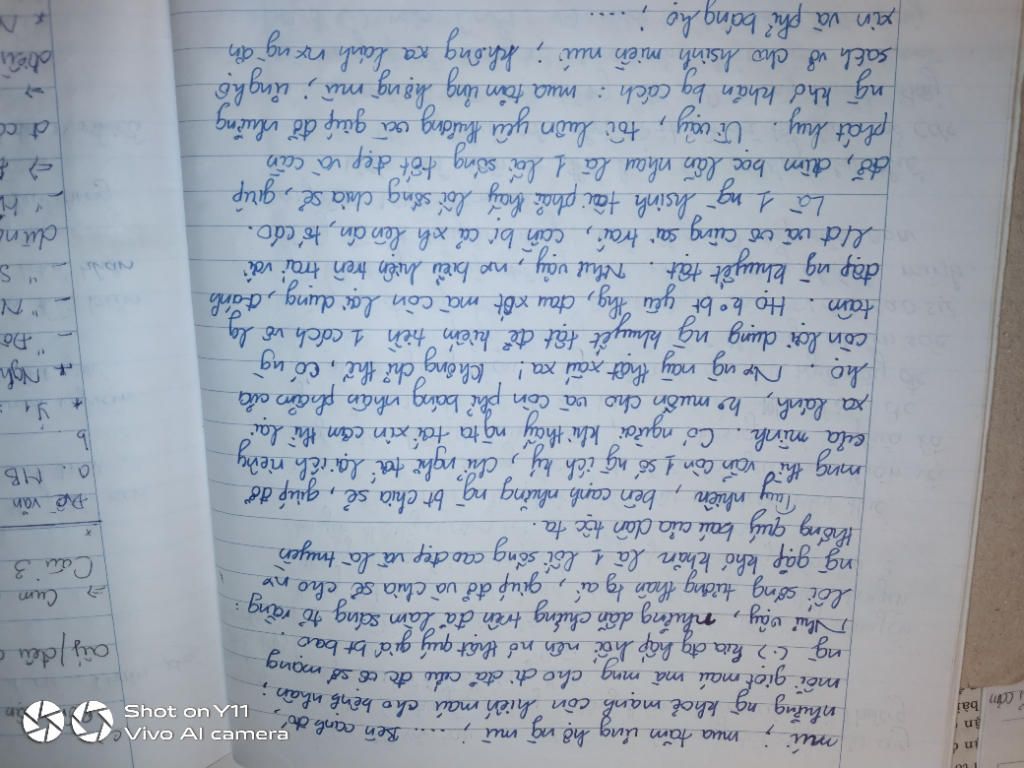 mù, mua tăm ủng hộ ng mù ..... Bên cạnh đó,
những ng khoẻ mạnh còn hiến máu cho bệnh nhân;
mỗi giọt máu mà mng cho đi đã cứu đc cs số mạng
ng () hấp hối nên nó thật quý giá bt bao.
Như vậy, những dẫn chứng trên đã làm sáng tỏ rằng:
lối sống tương thân tg ái, giúp đỡ và chia sẻ cho nx
ng gặp khó khăn là 1 lối sống cao đẹp và là truyền
thống quý báu của dân tộc ta.
Tuy nhiên, bên cạnh những ng bt chia sẻ, giúp đỡ
mng thì vẫn còn 1 số ng ích kỷ, chỉ nghĩ tới lợi ích riêng
của mình. Có người khi thấy ng ta tới xin cơm thì lại
xa lánh, ko muốn cho và còn phỉ báng nhân phẩm của
họ. Nx ng này thật xấu xa! Không chỉ thế, có ng
còn lợi dụng ng khuyết tật để kiếm tiền 1 cách vô lg
tâm. Họ ko bt yêu thg, đau xót mà còn lợi dụng, đánh
đập ng khuyết tật. Như vậy, nx biểu hiện trên trái với
và vô cùng sai trái, cần bị cả xh lên án, tố cáo.
Là 1 ng hsinh tôi phải thấy lối sống chia sẻ, giúp
đỡ, đùm bọc lẫn nhau là 1 lối sống tốt đẹp và cần
phát huy. Vì vậy, tôi luôn yêu thương và giúp đỡ những
ng khó khăn bg cách: mua tăm ủng hộ ng mù; ủng hộ
sách vở cho hsinh miền núi; không xa lánh nx ng ăn
xin và phỉ báng họ; .....
Cụm
Câu 3
Đề văn
a. MB
b
Shot on Y11
Vivo AI camera